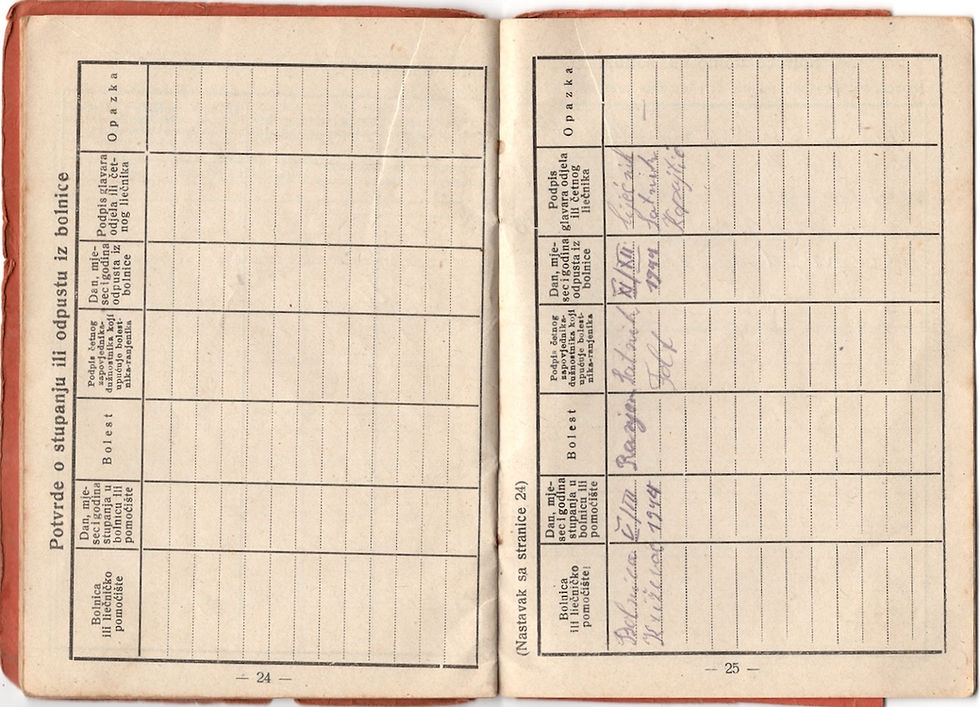 Potvrde o stupanju ili odpustu iz bolnice
Bolnica
ili liečničko
pomoćište
Dan, mje-
sec i godina
stupanja u
bolnicu ili
pomoćište
Bolest
Podpis četnog
zapovjednika-
dužnostnika koji
upućuje bolest-
nika-ranjenika
Dan, mje-
sec i godina
odpusta iz
bolnice
Podpis glavara
odjela ili čet-
nog liečnika
Opazka
— 24 —
(Nastavak sa stranice 24)
Bolnica
ili liečničko
pomoćište
Dan, mje-
sec i godina
stupanja u
bolnicu ili
pomoćište
Bolest
Podpis četnog
zapovjednika-
dužnostnika koji
upućuje bolest-
nika-ranjenika
Dan, mje-
sec i godina
odpusta iz
bolnice
Podpis
glavara odjela
ili četnog
liečnika
Opazka
Bolnica
Križevac
1944
Ranjen
Satnik
XI/XII
1944
Liečnik
Satnik
—
— 25 —